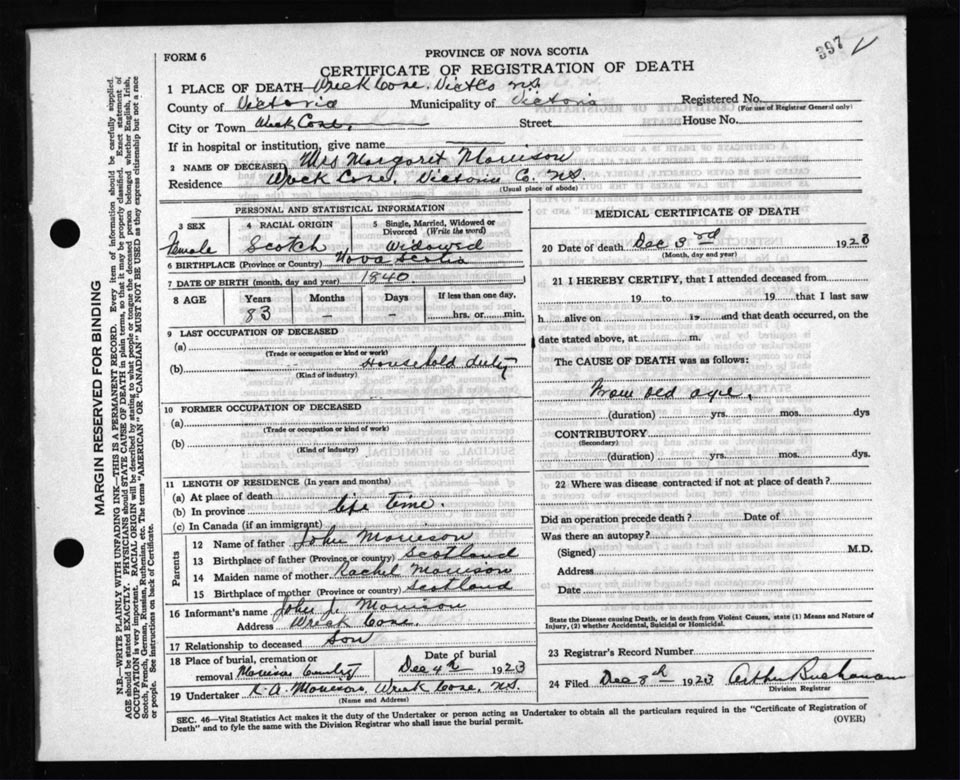 397 V
FORM 6
PROVINCE OF NOVA SCOTIA
CERTIFICATE OF REGISTRATION OF DEATH
1 PLACE OF DEATH Wreck Cove, Vict Co N.S.
County of Victoria Municipality of Victoria Registered No.
(For use of Registrar General only)
City or Town Wreck Cove, Street House No.
If in hospital or institution, give name
2 NAME OF DECEASED Mrs Margaret Morrison
Residence Wreck Cove, Victoria Co. N.S.
(Usual place of abode)
PERSONAL AND STATISTICAL INFORMATION
3 SEX 4 RACIAL ORIGIN 5 Single, Married, Widowed or Divorced (Write the word)
Female Scotch Widowed
6 BIRTHPLACE (Province or Country) Nova Scotia
7 DATE OF BIRTH (month, day and year) 1840.
8 AGE Years Months Days If less than one day,
83 - - hrs. or min.
9 LAST OCCUPATION OF DECEASED
(a)
(Trade or occupation or kind or work)
(b) Household duty
(Kind of industry)
10 FORMER OCCUPATION OF DECEASED
(a)
(Trade or occupation or kind of work)
(b)
(Kind of industry)
11 LENGTH OF RESIDENCE (In years and months)
(a) At place of death
(b) In province life time.
(c) In Canada (if an immigrant)
Parents
12 Name of father John Morrison
13 Birthplace of father (Province or country) Scotland
14 Maiden name of mother Rachel Morrison
15 Birthplace of mother (Province or country) Scotland
16 Informant's name John J. Morrison
Address Wreck Cove.
17 Relationship to deceased Son
18 Place of burial, cremation or removal Date of burial
Dec 4th 1923
19 Undertaker K. A. Morrison, Wreck Cove, N.S.
(Name and Address)
MEDICAL CERTIFICATE OF DEATH
20 Date of death Dec 3rd 1923
(Month, day and year)
21 I HEREBY CERTIFY, that I attended deceased from
19 to 19 that I last saw
h alive on 19 and that death occurred, on
date stated above, at m.
The CAUSE OF DEATH was as follows:
From old age,
(duration) yrs. mos. dys
CONTRIBUTORY
(Secondary)
(duration) yrs. mos. dys.
22 Where was disease contracted if not at place of death?
Did an operation precede death? Date of
Was there an autopsy?
(Signed) M.D.
Address
Date
State the Disease causing Death, or in death from Violent Causes, state (1) Means and Nature of Injury, (2) whether Accidental, Suicidal or Homicidal.
23 Registrar's Record Number
24 Filed Dec 8th 1923 Arthur Buchanan
Division Registrar
SEC. 46—Vital Statistics Act makes it the duty of the Undertaker or person acting as Undertaker to obtain all the particulars required in the "Certificate of Registration of
Death" and to fyle the same with the Division Registrar who shall issue the burial permit.
(OVER)
MARGIN RESERVED FOR BINDING
N.B.—WRITE PLAINLY WITH UNFADING INK—THIS IS A PERMANENT RECORD. Every item of information should be carefully supplied.
AGE should be stated EXACTLY. PHYSICIANS should STATE CAUSE OF DEATH in plain terms, so that it may be properly classified. Exact statement of
OCCUPATION is very important. RACIAL ORIGIN will be described by stating to what people or tongue the deceased person belonged whether English, Irish,
Scotch, French, German, Russian, Ruthenian, etc. The terms "AMERICAN" OR "CANADIAN" MUST NOT BE USED as they express citizenship but not a race
or people. See instructions on back of Certificate.